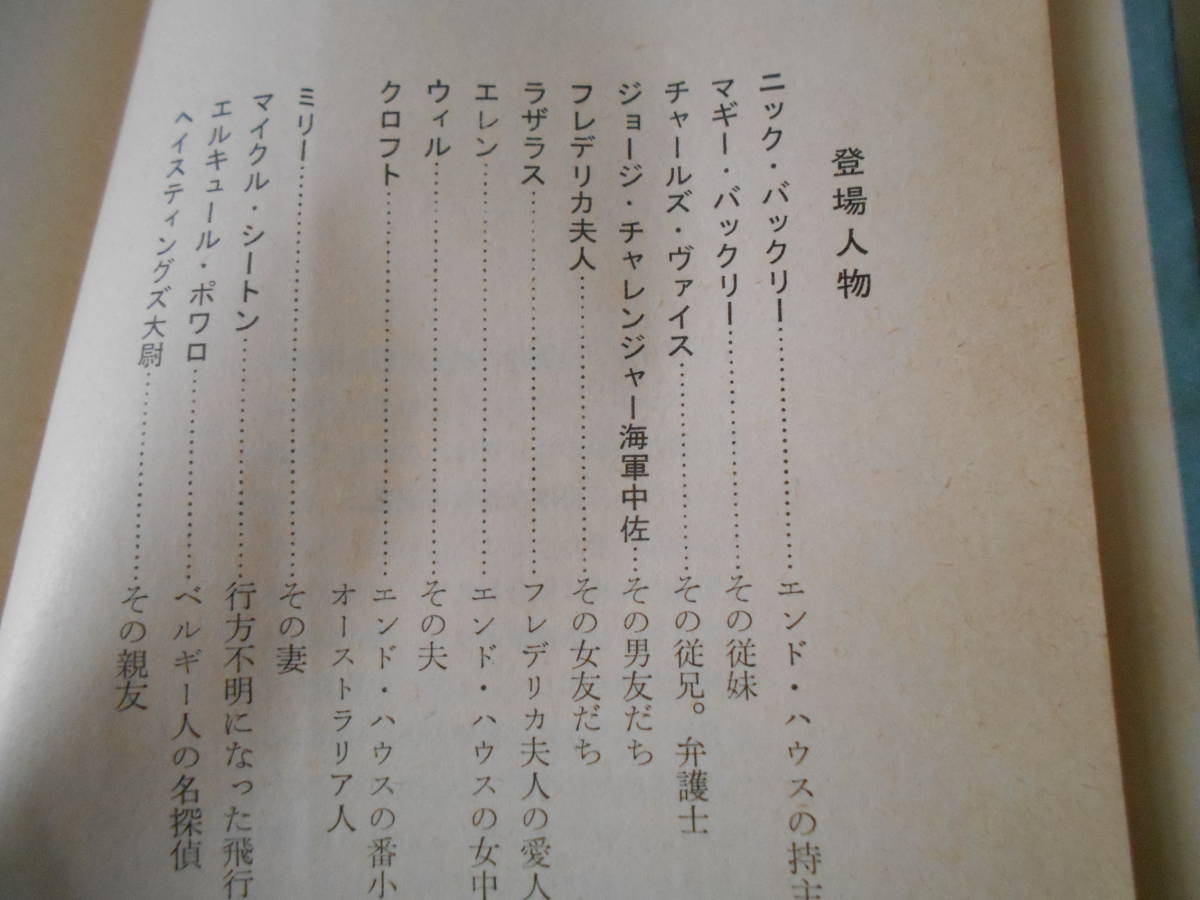 登場人物
ニック・バックリー……………………エンド・ハウスの持主
マギー・バックリー……………………その従妹
チャールズ・ヴァイス…………………その従兄。弁護士
ジョージ・チャレンジャー海軍中佐…その男友だち
フレデリカ夫人…………………………その女友だち
ラザラス…………………………………フレデリカ夫人の愛人
エレン……………………………………エンド・ハウスの女中
ウィル……………………………………その夫
クロフト…………………………………エンド・ハウスの番小
オーストラリア人
ミリー……………………………………その妻
マイクル・シートン……………………行方不明になった飛行
エルキュール・ポワロ…………………ベルギー人の名探偵
ヘイスティングズ大尉…………………その親友